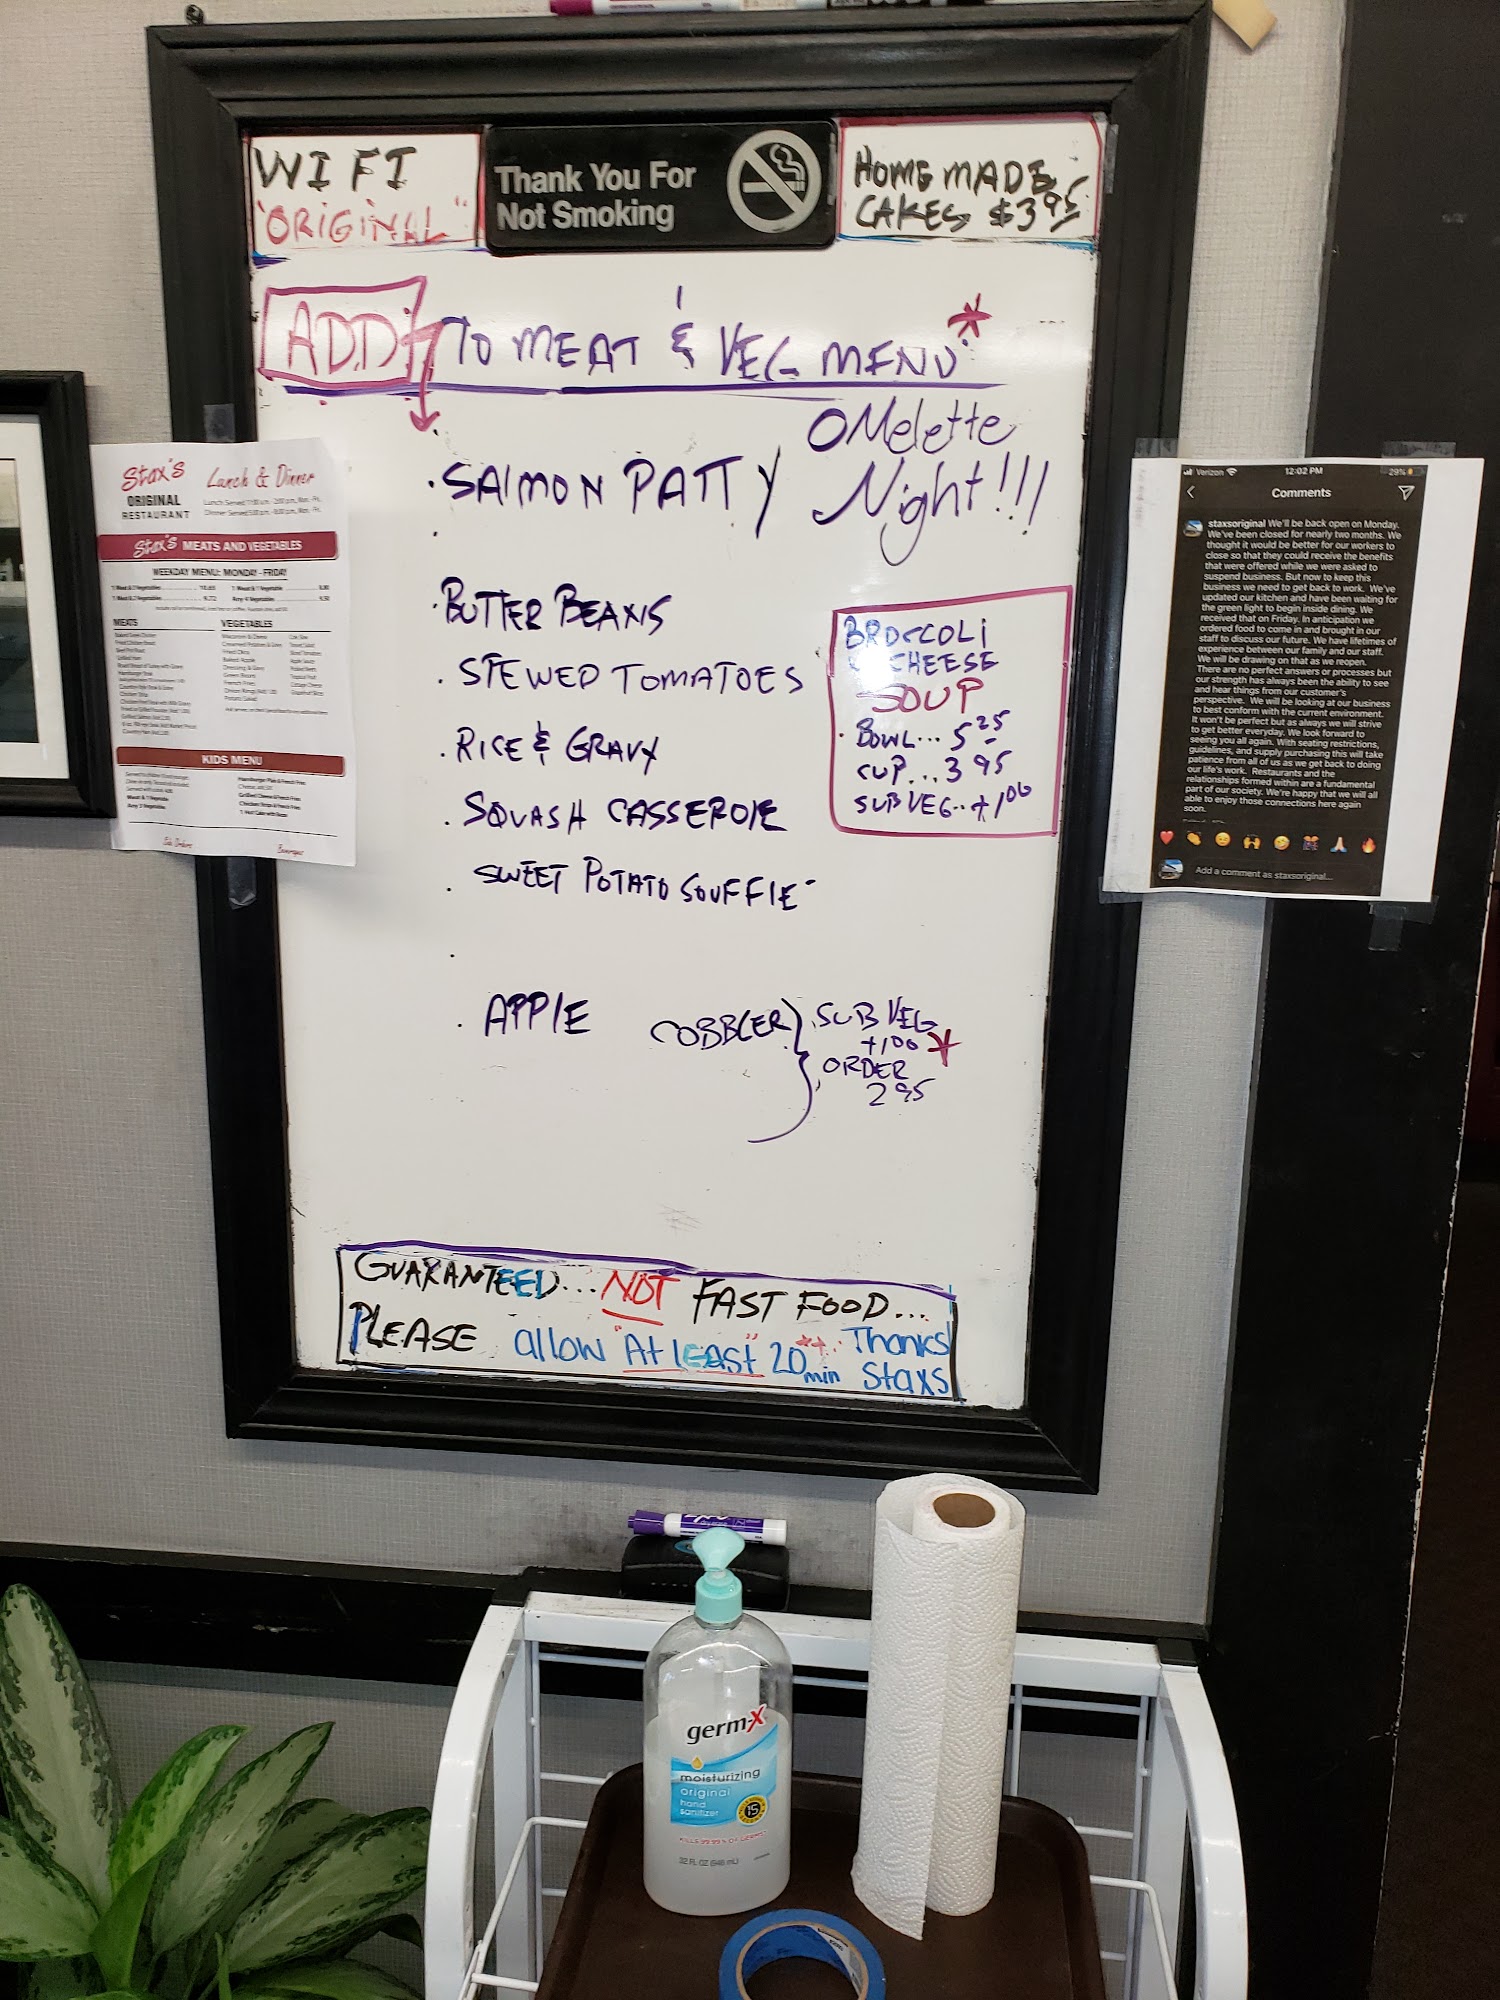 WIFI
"ORIGINAL"
Thank You For
Not Smoking
HOMEMADE
CAKES $3.95
ADD TO MEAT & VEG MENU*
OMelette
Night!!!
. SALMON PATTY
. BUTTER BEANS
. STEWED TOMATOES
. RICE & GRAVY
. SQUASH CASSEROLE
. SWEET POTATO SOUFFLE
. APPLE COBBLER
SUB VEG
+1.00 *
ORDER
2.95
BROCCOLI
& CHEESE
SOUP
BOWL... 5.25
CUP... 3.95
SUB VEG.. +1.00
GUARANTEED... NOT FAST FOOD...
PLEASE allow "At least" 20 min ** Thanks
Staxs
Stax's
ORIGINAL
RESTAURANT
Lunch & Dinner
Stax's MEATS AND VEGETABLES
WEEKDAY MENU: MONDAY - FRIDAY
MEATS
VEGETABLES
KIDS MENU
Verizon
12:02 PM
29%
Comments
staxsoriginal We'll be back open on Monday.
We've been closed for nearly two months. We
thought it would be better for our workers to
close so that they could receive the benefits
that were offered while we were asked to
suspend business. But now to keep this
business we need to get back to work. We've
updated our kitchen and have been waiting for
the green light to begin inside dining. We
received that on Friday. In anticipation we
ordered food to come in and brought in our
staff to discuss our future. We have lifetimes of
experience between our family and our staff.
We will be drawing on that as we reopen.
There are no perfect answers or processes but
our strength has always been the ability to see
and hear things from our customer's
perspective. We will be looking at our business
to best conform with the current environment.
It won't be perfect but as always we will strive
to get better everyday. We look forward to
seeing you all again. With seating restrictions,
guidelines, and supply purchasing this will take
patience from all of us as we get back to doing
our life's work. Restaurants and the
relationships formed within are a fundamental
part of our society. We're happy that we will all
able to enjoy those connections here again
soon.
Add a comment as staxsoriginal...
germ-X
moisturizing
original
hand
sanitizer
15
KILLS 99.99% OF GERMS*
32 FL OZ (946 mL)